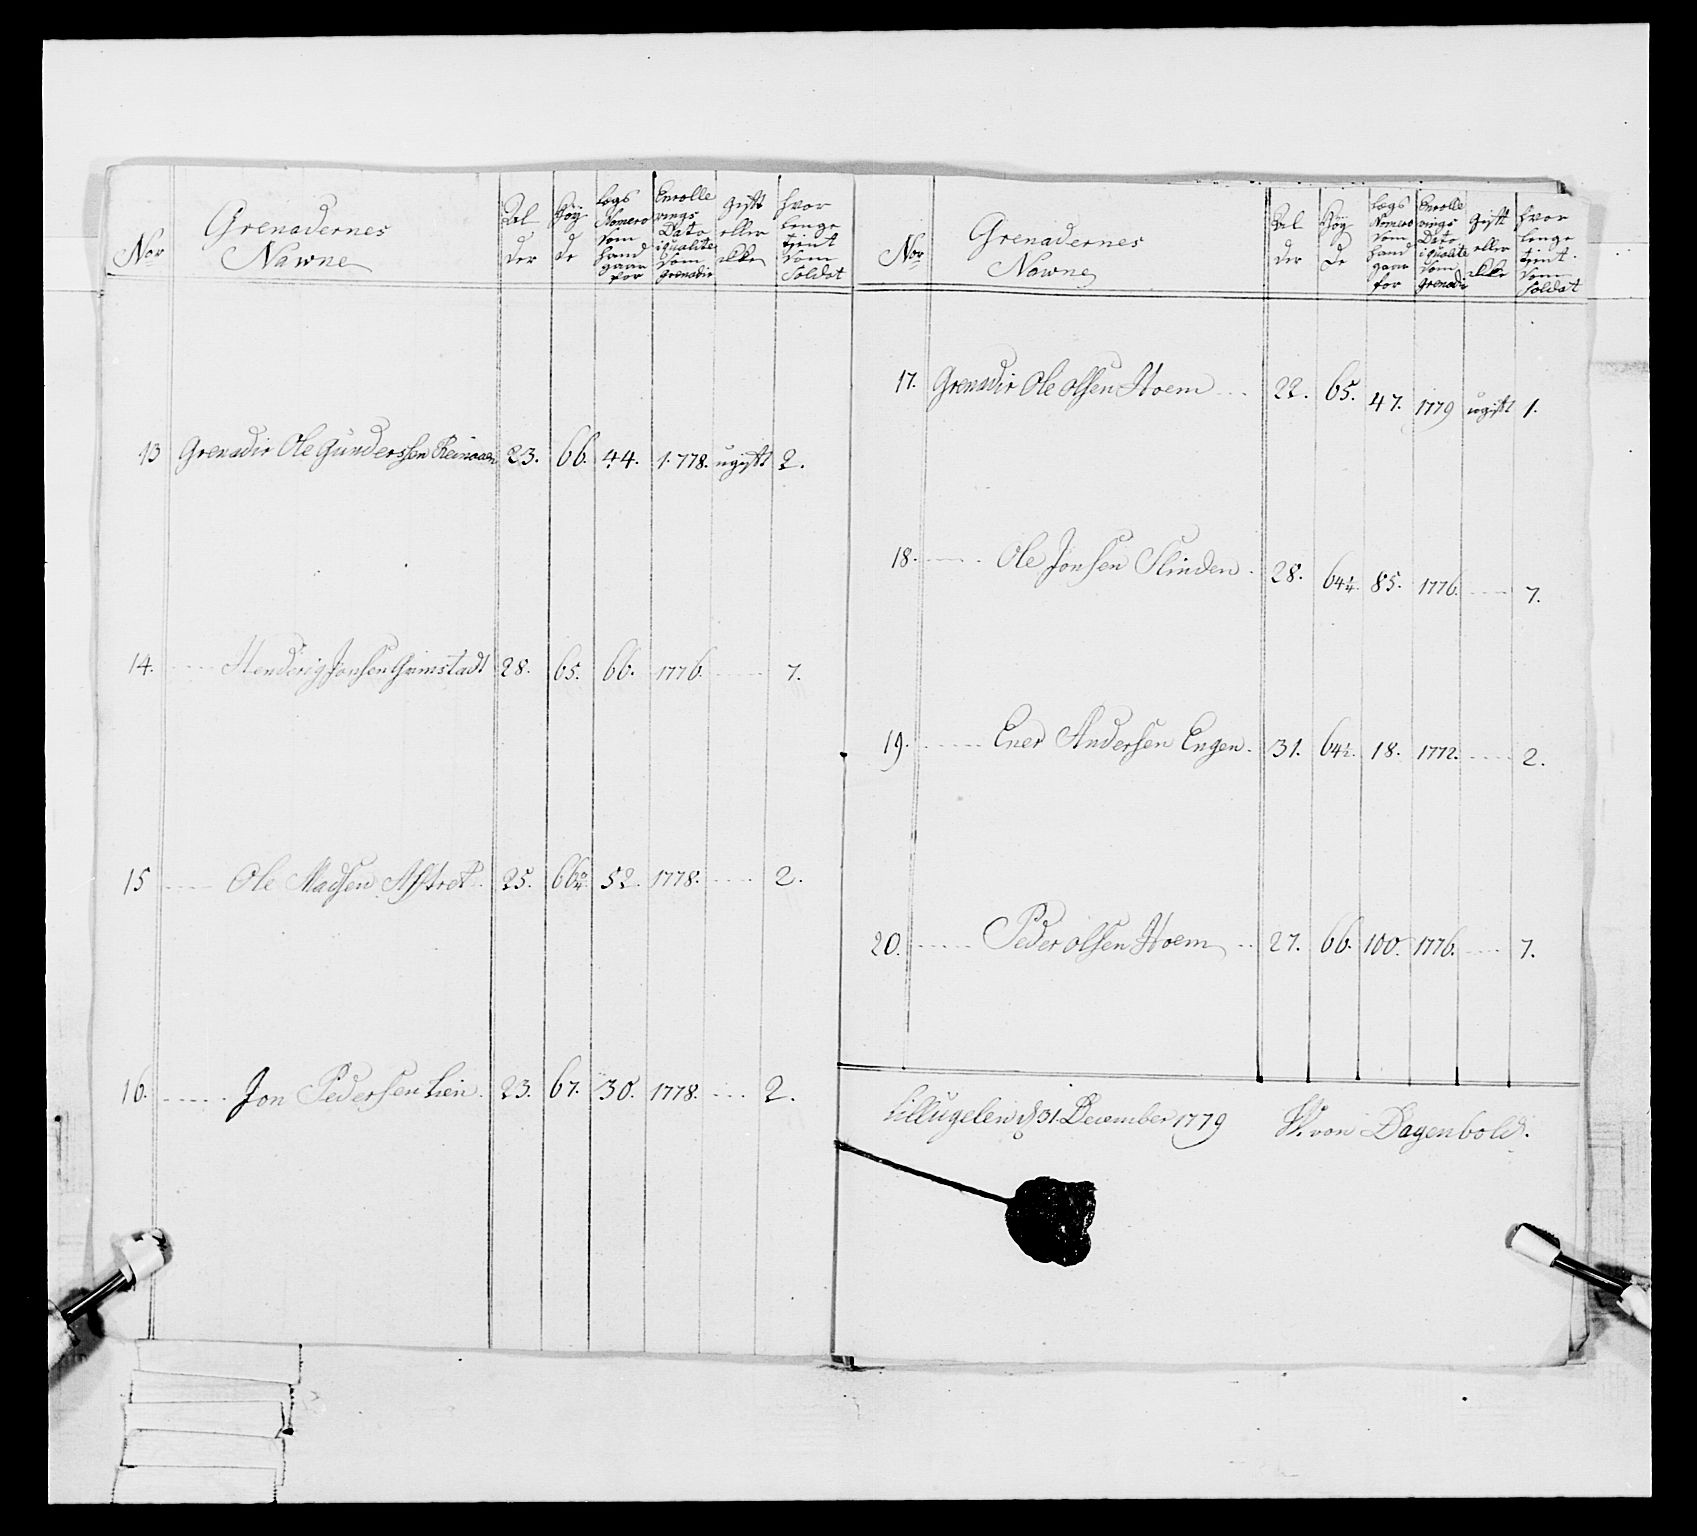 Nor Grenadernes Nawne Al der Høy de Legs Nomero som hand gaar for Enrolle rings Dato i qualite som Grenadir Gift eller ikke hvor lenge tient som Soldat
13 Grenadir Ole Gunderssen 23. 66. 44. 1778. ugift 2.
14. Henderig Jonsen Grimstadt 28. 65. 66. 1776. 7.
15 Ole Madsen 25. 66 52. 1778. 2.
16. Jon Pedersen Lien. 23. 67. 30. 1778. 2.
Nor Grenadernes Nawne Al der Høy de Legs Nomero som hand gaar for Enrolle rings Dato i qualite som Grenadir Gift eller ikke hvor lenge tient som Soldat
17. Grenadir Ole Olsen Hoem 22. 65. 47. 1779 ugift 1.
18. Ole Jonsen Slinden. 28. 64 85. 1776. 7.
19. Ener Andersen Engen. 31. 64 18. 1772. 2.
20. Peder Olsen Hoem 27. 66. 100. 1776. 7.
31. December 1779 W. von Dagenbold.